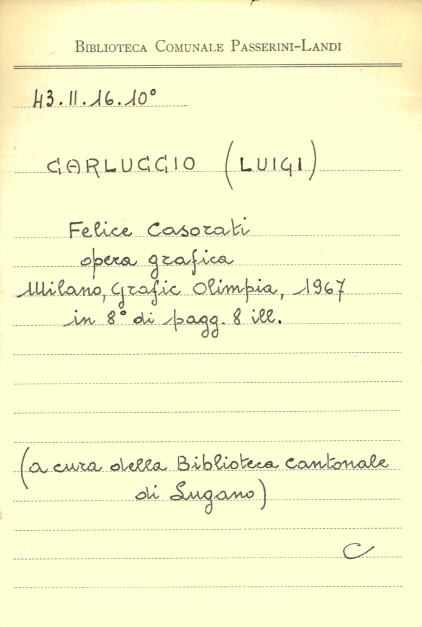 BIBLIOTECA COMUNALE PASSERINI-LANDI
43.II.16.10°
GARLUGGIO (LUIGI)
Felice Casorati
opera grafica
Milano, Grafic Olimpia, 1967
in 8° di pagg. 8 ill.
(a cura della Biblioteca cantonale
di Lugano)
C